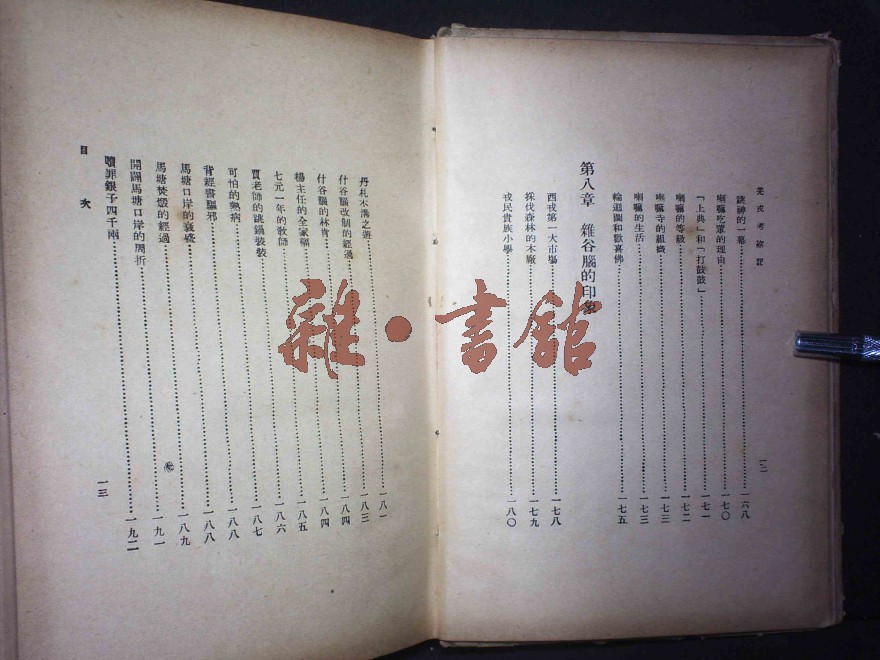 羌戎考察記
跳神的一幕……一六八
喇嘛吃葷的理由……一七〇
「上典」和「打鼓鼓」……一七一
喇嘛的等級……一七二
喇嘛寺的組織……一七三
喇嘛的生活……一七三
輪迴圖和歡喜佛……一七五
第八章 雜谷腦的印象
西戎第一大市場……一七八
採伐森林的木廠……一七九
戎民貴族小學……一八〇
一二
丹札木溝之遊……一八一
什谷腦改制的經過……一八三
什谷腦的林肯……一八四
楊主任的全家福……一八四
七元一年的教師……一八五
賈老師的跳鍋裝裝……一八六
可怕的熱病……一八七
背經書驅邪……一八八
馬塘口岸的衰盛……一八八
馬塘焚燬的經過……一八九
開闢馬塘口岸的周折……一九一
贖罪銀子四千兩……一九二
目次
一三
雜·書館